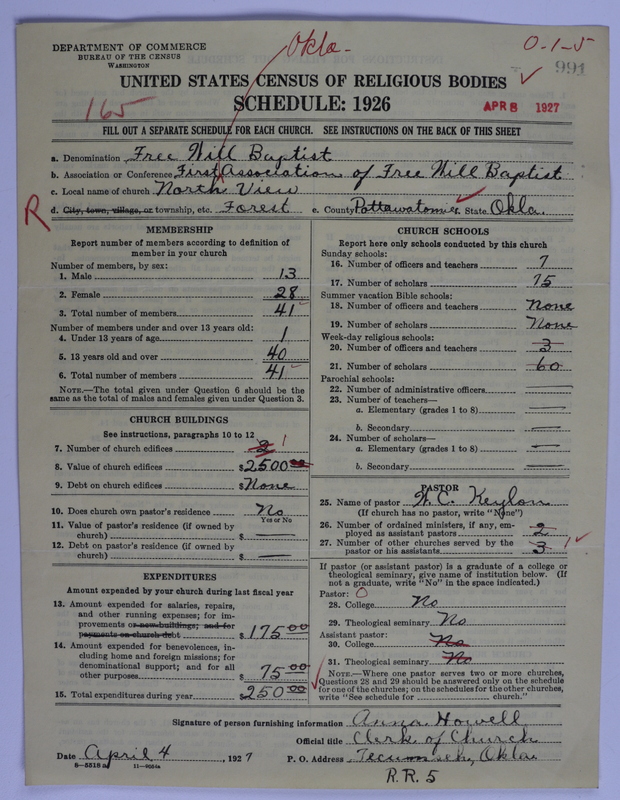 DEPARTMENT OF COMMERCE
BUREAU OF THE CENSUS
WASHINGTON
Okla.
0-1-5
991
165
UNITED STATES CENSUS OF RELIGIOUS BODIES
SCHEDULE: 1926
APR 8 1927
FILL OUT A SEPARATE SCHEDULE FOR EACH CHURCH. SEE INSTRUCTIONS ON THE BACK OF THIS SHEET
a. Denomination Free Will Baptist
b. Association or Conference First Association of Free Will Baptist
c. Local name of church North View
R
d. City, town, village, or township, etc. Forest e. County Pottawatomie State Okla.
MEMBERSHIP
Report number of members according to definition of
member in your church
Number of members, by sex:
1. Male 13
2. Female 28
3. Total number of members 41
Number of members under and over 13 years old:
4. Under 13 years of age 1
5. 13 years old and over 40
6. Total number of members 41
NOTE.—The total given under Question 6 should be
same as the total of males and females given under Question 3.
CHURCH BUILDINGS
See instructions, paragraphs 10 to 12
7. Number of church edifices 2 1
8. Value of church edifices $2500 00
9. Debt on church edifices $None
10. Does church own pastor's residence No
Yes or No
11. Value of pastor's residence (if owned by
church) $ —
12. Debt on pastor's residence (if owned by
church) $ —
EXPENDITURES
Amount expended by your church during last fiscal year
13. Amount expended for salaries, repairs,
and other running expenses; for im-
provements or new buildings; and for
payments on church debt $ 175 00
14. Amount expended for benevolences, in-
cluding home and foreign missions; for
denominational support; and for all
other purposes $ 75 00
15. Total expenditures during year $ 250 00
CHURCH SCHOOLS
Report here only schools conducted by this church
Sunday schools:
16. Number of officers and teachers 7
17. Number of scholars 75
Summer vacation Bible schools:
18. Number of officers and teachers None
19. Number of scholars None
Week-day religious schools:
20. Number of officers and teachers 3
21. Number of scholars 60
Parochial schools:
22. Number of administrative officers —
23. Number of teachers—
a. Elementary (grades 1 to 8) —
b. Secondary —
24. Number of scholars—
a. Elementary (grades 1 to 8) —
b. Secondary —
PASTOR
25. Name of pastor W. C. Keylon
(If church has no pastor, write "None")
26. Number of ordained ministers, if any, em-
ployed as assistant pastors 2
27. Number of other churches served by the
pastor or his assistants 3 1
If pastor (or assistant pastor) is a graduate of a college or
theological seminary, give name of institution below. (If
not a graduate, write "No" in the space indicated.)
Pastor: 0
28. College No
29. Theological seminary No
Assistant pastor:
30. College No
31. Theological seminary No
NOTE.—Where one pastor serves two or more churches,
Questions 28 and 29 should be answered only on the schedule
for one of the churches; on the schedules for the other churches,
write "See schedule for church."
Signature of person furnishing information Anna Howell
Official title Clerk of Church
Date April 4, 1927 P. O. Address Tecumseh, Okla.
R.R. 5